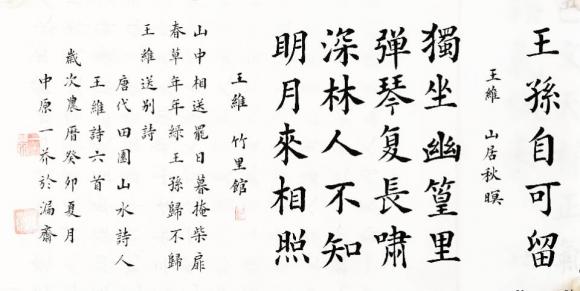 王孫自可留
王維 山居秋暝
獨坐幽篁里
彈琴复長嘯
深林人不知
明月來相照
王維 竹里館
山中相送罷日暮掩柴扉
春草年年綠王孫歸不歸
王維送别詩
唐代田園山水詩人
王維詩六首
歲次農曆癸卯夏月
中原一芥於漏齋